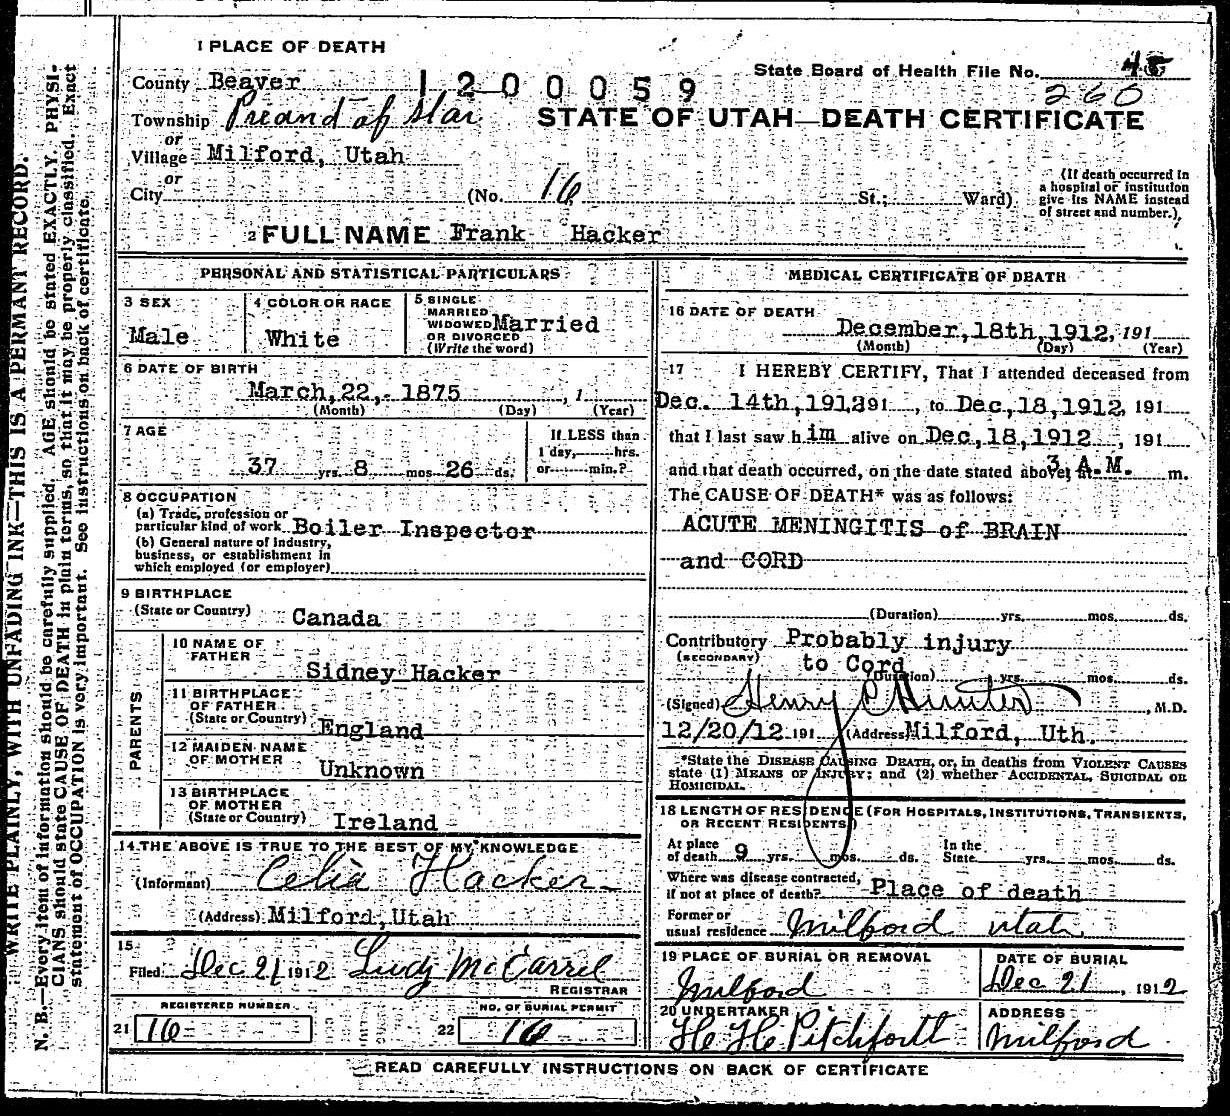 1 PLACE OF DEATH
County Beaver
1200059
State Board of Health File No. 45
260
Township Precinct of Star
STATE OF UTAH—DEATH CERTIFICATE
or
Village Milford, Utah
or
City (No. 16 St.; Ward)
(If death occurred in
a hospital or institution
give its NAME instead
of street and number.)
2 FULL NAME Frank Hacker
PERSONAL AND STATISTICAL PARTICULARS
3 SEX
Male
4 COLOR OR RACE
White
5 SINGLE
MARRIED
WIDOWED Married
OR DIVORCED
(Write the word)
6 DATE OF BIRTH
March, 22,- 1875, 1
(Month) (Day) (Year)
7 AGE
37 yrs. 8 mos. 26 ds.
If LESS than
1 day, hrs.
or min.?
8 OCCUPATION
(a) Trade, profession or
particular kind of work Boiler Inspector
(b) General nature of industry,
business, or establishment in
which employed (or employer)
9 BIRTHPLACE
(State or Country) Canada
PARENTS
10 NAME OF
FATHER
Sidney Hacker
11 BIRTHPLACE
OF FATHER
(State or Country) England
12 MAIDEN NAME
OF MOTHER
Unknown
13 BIRTHPLACE
OF MOTHER
(State or Country) Ireland
14 THE ABOVE IS TRUE TO THE BEST OF MY KNOWLEDGE
(Informant) Celia Hacker
(Address) Milford, Utah
15
Filed Dec 21 1912 Ludy McCarrel
REGISTRAR
REGISTERED NUMBER
21 16
NO. OF BURIAL PERMIT
22 16
MEDICAL CERTIFICATE OF DEATH
16 DATE OF DEATH
December, 18th, 1912, 191
(Month) (Day) (Year)
17 I HEREBY CERTIFY, That I attended deceased from
Dec. 14th, 1912 191, to Dec, 18, 1912, 191
that I last saw him alive on Dec, 18, 1912, 191
and that death occurred, on the date stated above, at 3 A.M. m.
The CAUSE OF DEATH* was as follows:
ACUTE MENINGITIS of BRAIN
and CORD
(Duration) yrs. mos. ds.
Contributory Probably injury
(SECONDARY) to Cord
(Duration) yrs. mos. ds.
(Signed) Henry C Hunter, M.D.
12/20/12 191 (Address) Milford, Uth.
*State the DISEASE CAUSING DEATH, or, in deaths from VIOLENT CAUSES
state (1) MEANS OF INJURY; and (2) whether ACCIDENTAL, SUICIDAL OR
HOMICIDAL.
18 LENGTH OF RESIDENCE (FOR HOSPITALS, INSTITUTIONS, TRANSIENTS,
OR RECENT RESIDENTS)
At place
of death 9 yrs. mos. ds.
In the
State yrs. mos. ds.
Where was disease contracted,
if not at place of death? Place of death
Former or
usual residence Milford Utah
19 PLACE OF BURIAL OR REMOVAL
Milford
DATE OF BURIAL
Dec 21, 1912
20 UNDERTAKER
H. H. Pitchforth
ADDRESS
Milford
READ CAREFULLY INSTRUCTIONS ON BACK OF CERTIFICATE
WRITE PLAINLY, WITH UNFADING INK—THIS IS A PERMANT RECORD.
N. B.—Every item of information should be carefully supplied. AGE should be stated EXACTLY. PHYSI-
CIANS should state CAUSE OF DEATH in plain terms, so that it may be properly classified. Exact
statement of OCCUPATION is very important. See instructions on back of certificate.